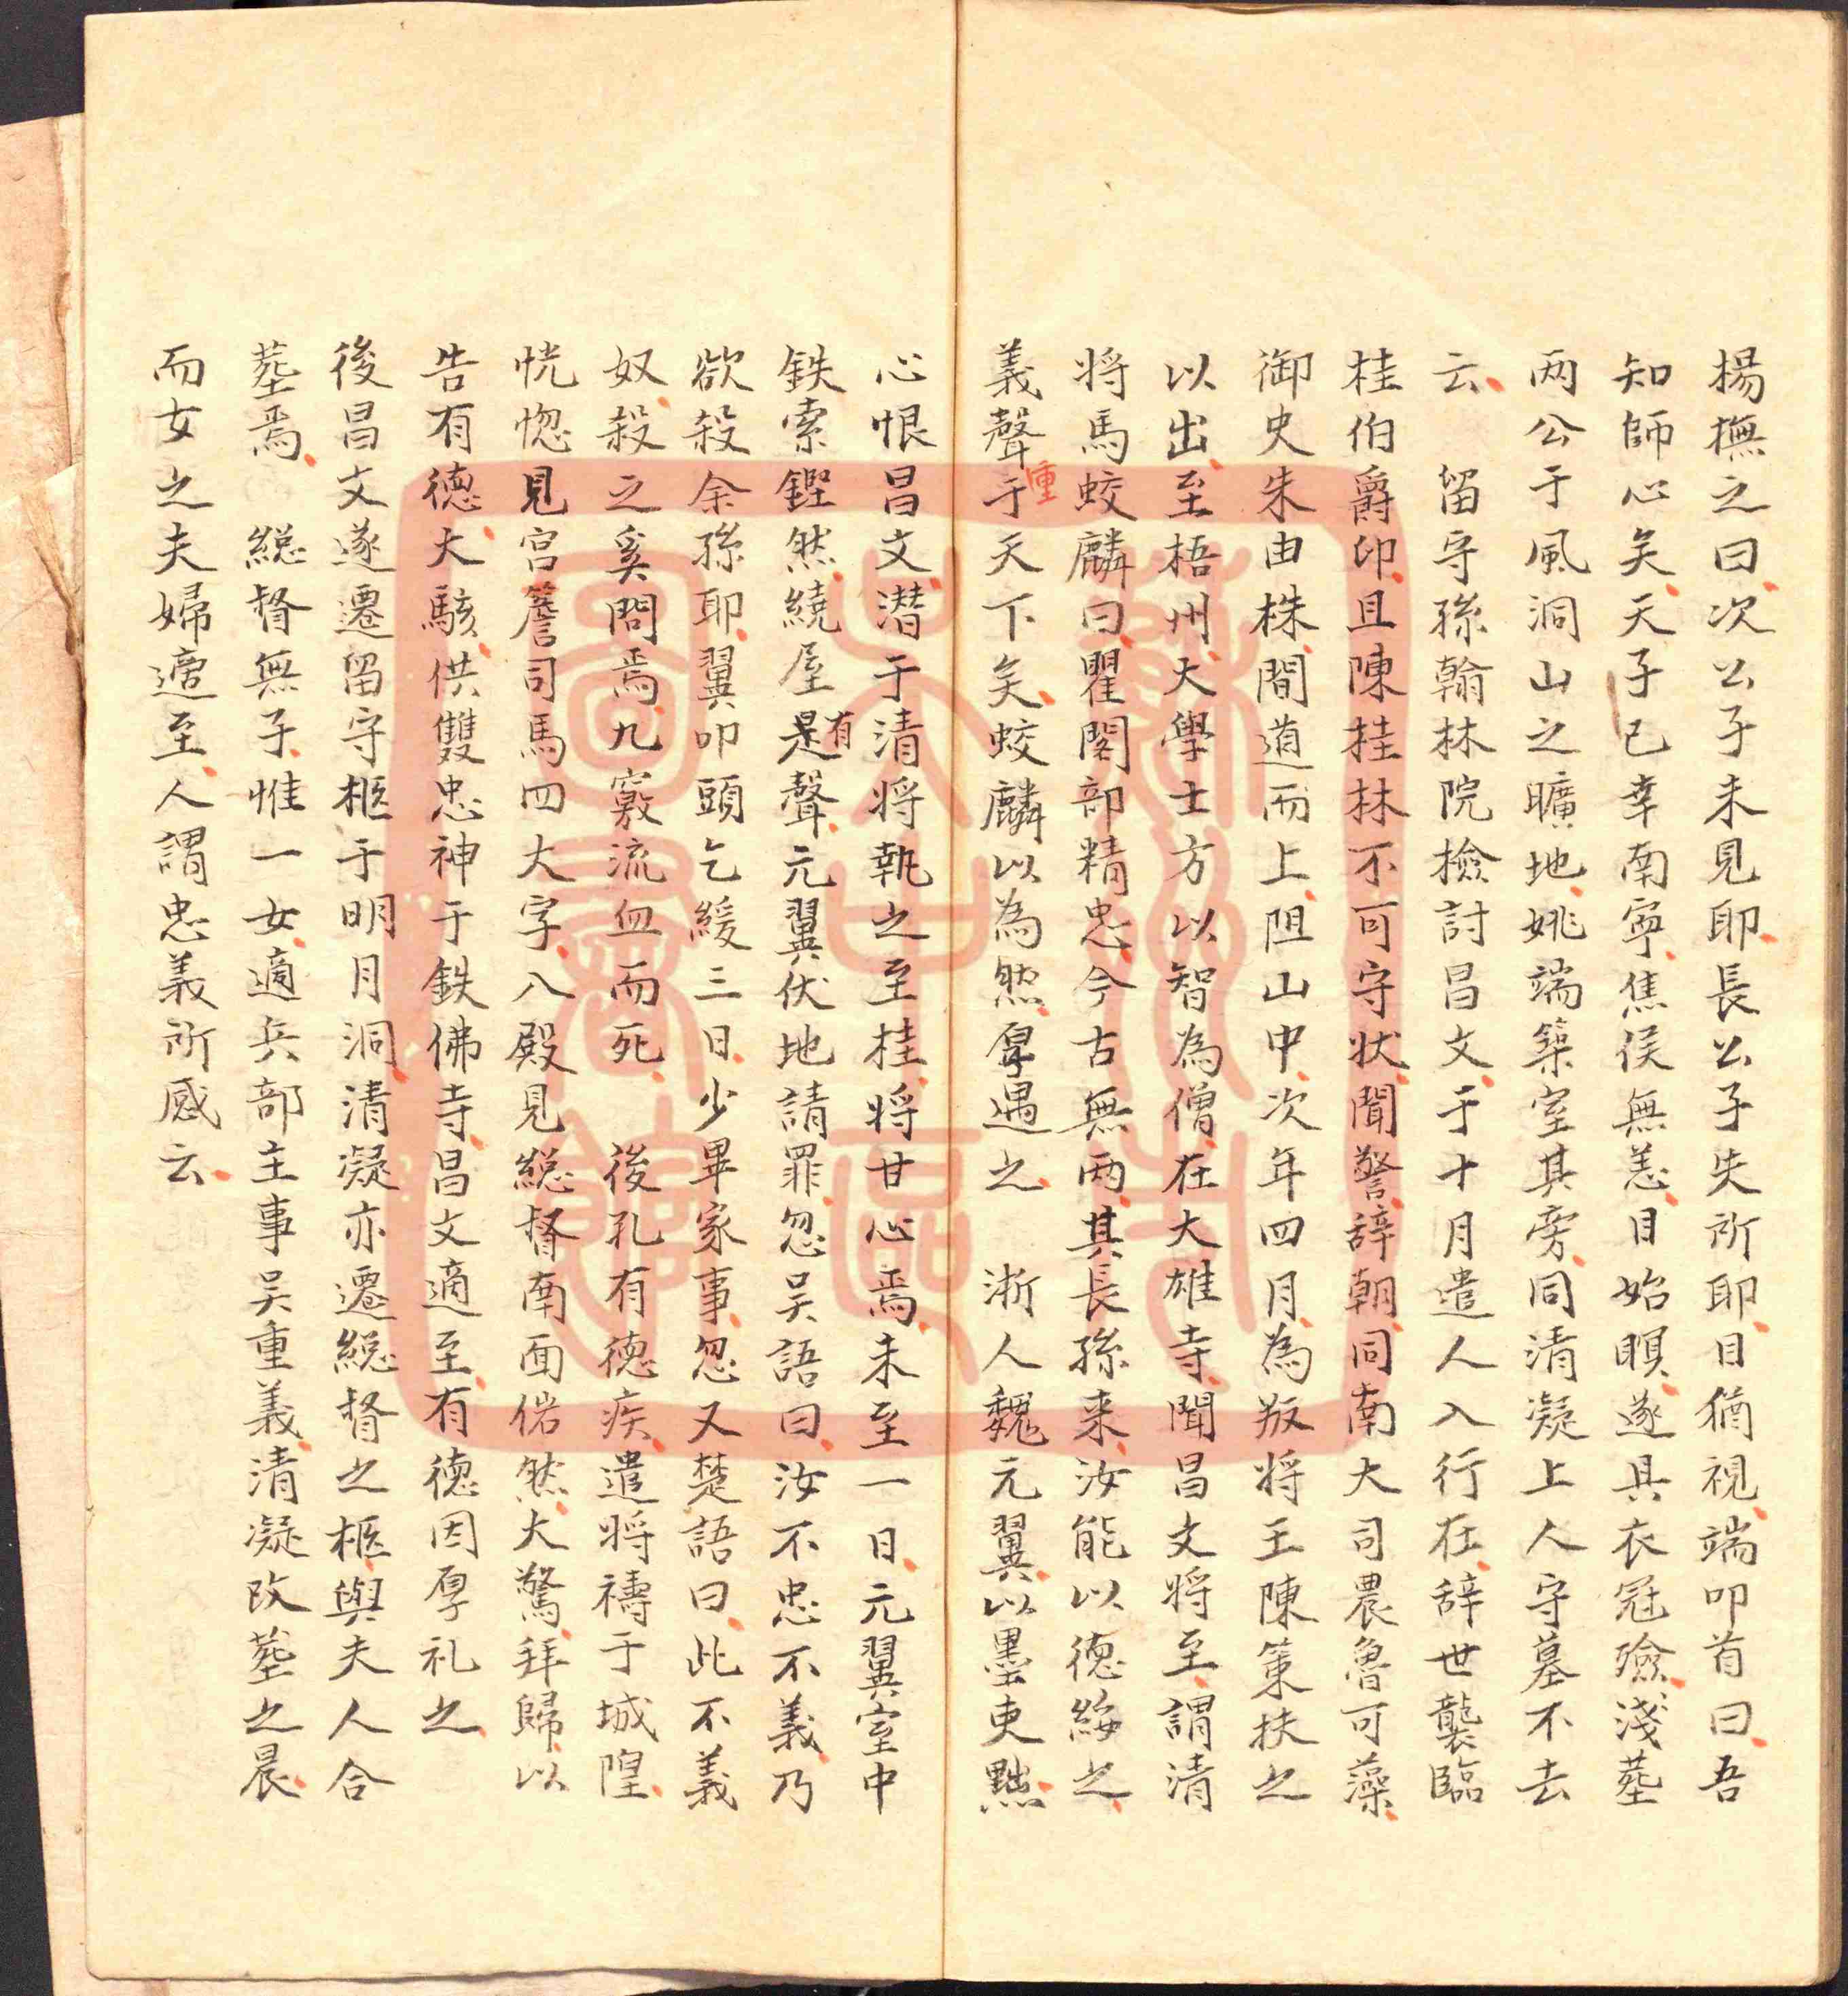 楊撫之曰次公子未見耶長公子失所耶目猶視端叩首曰吾
知師心矣天子已幸南寧焦侯無恙目始瞑遂具衣冠殮淺塟
两公于風洞山之曠地姚端築室其旁同清凝上人守墓不去
云　留守孫翰林院撿討昌文于十月遣人入行在辞世襲臨
桂伯爵印且陳桂林不可守状聞警辞朝同南大司農魯可藻
御史朱由㭡間道而上阻山中次年四月為叛将王陳策扶之
以出至梧州大學士方以智為僧在大雄寺聞昌文将至謂清
将馬蛟麟曰瞿閣部精忠今古無两其長孫来汝能以德綏之
義聲重于天下矣蛟麟以為然厚遇之　浙人魏元翼以墨吏黜
心恨昌文潜于清将執之至桂将甘心焉未至一日元翼室中
鉄索鏗然繞屋有是聲元翼伏地請罪忽吴語曰汝不忠不義乃
欲殺余孫耶翼叩頭乞緩三日少畢家事忽又楚語曰此不義
奴殺之奚問焉九竅流血而死　後孔有德疾遣将禱于城隍
恍惚見宫詹司馬四大字入殿見総督南面偕然大驚拜歸以
告有德大駭供雙忠神于鉄佛寺昌文適至有德因厚礼之
後昌文遂遷留守柩于明月洞清凝亦遷総督之柩與夫人合
塟焉　総督無子惟一女適兵部主事吴重義清凝改塟之晨
而女之夫婦適至人謂忠義所感云